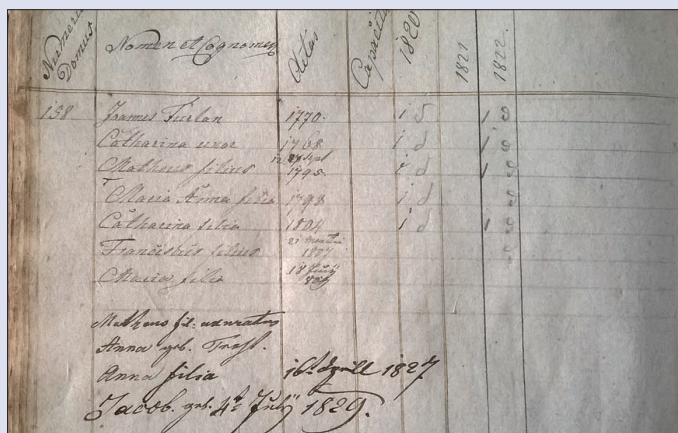 Numerus Domus Nomen et Cognomen Aetas Capacitas 1820 1821 1822.
158 Joannes Furlan 1770. 1 1
Catharina uxor 1768 1 1
Matheus filius 1795 1 1
Maria Anna filia 1798 1
Catharina filia 1804 1 1
Franciscus filius 1807
Maria filia 18 July
Matheus fil: uxoratus
Anna geb.
Anna filia 16t April 1827
Jacob. geb. 4t July 1829.